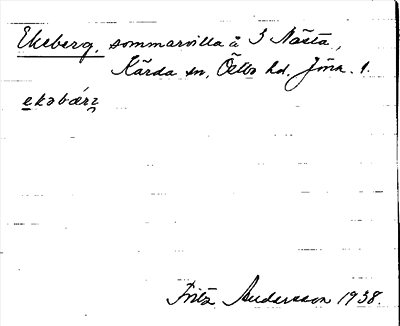 Ekeberg, sommarvilla å S Nästa,
Kärda sn, Östbo hd. Jönk. l.
ekəbærʒ
Fritz Andersson 1938.